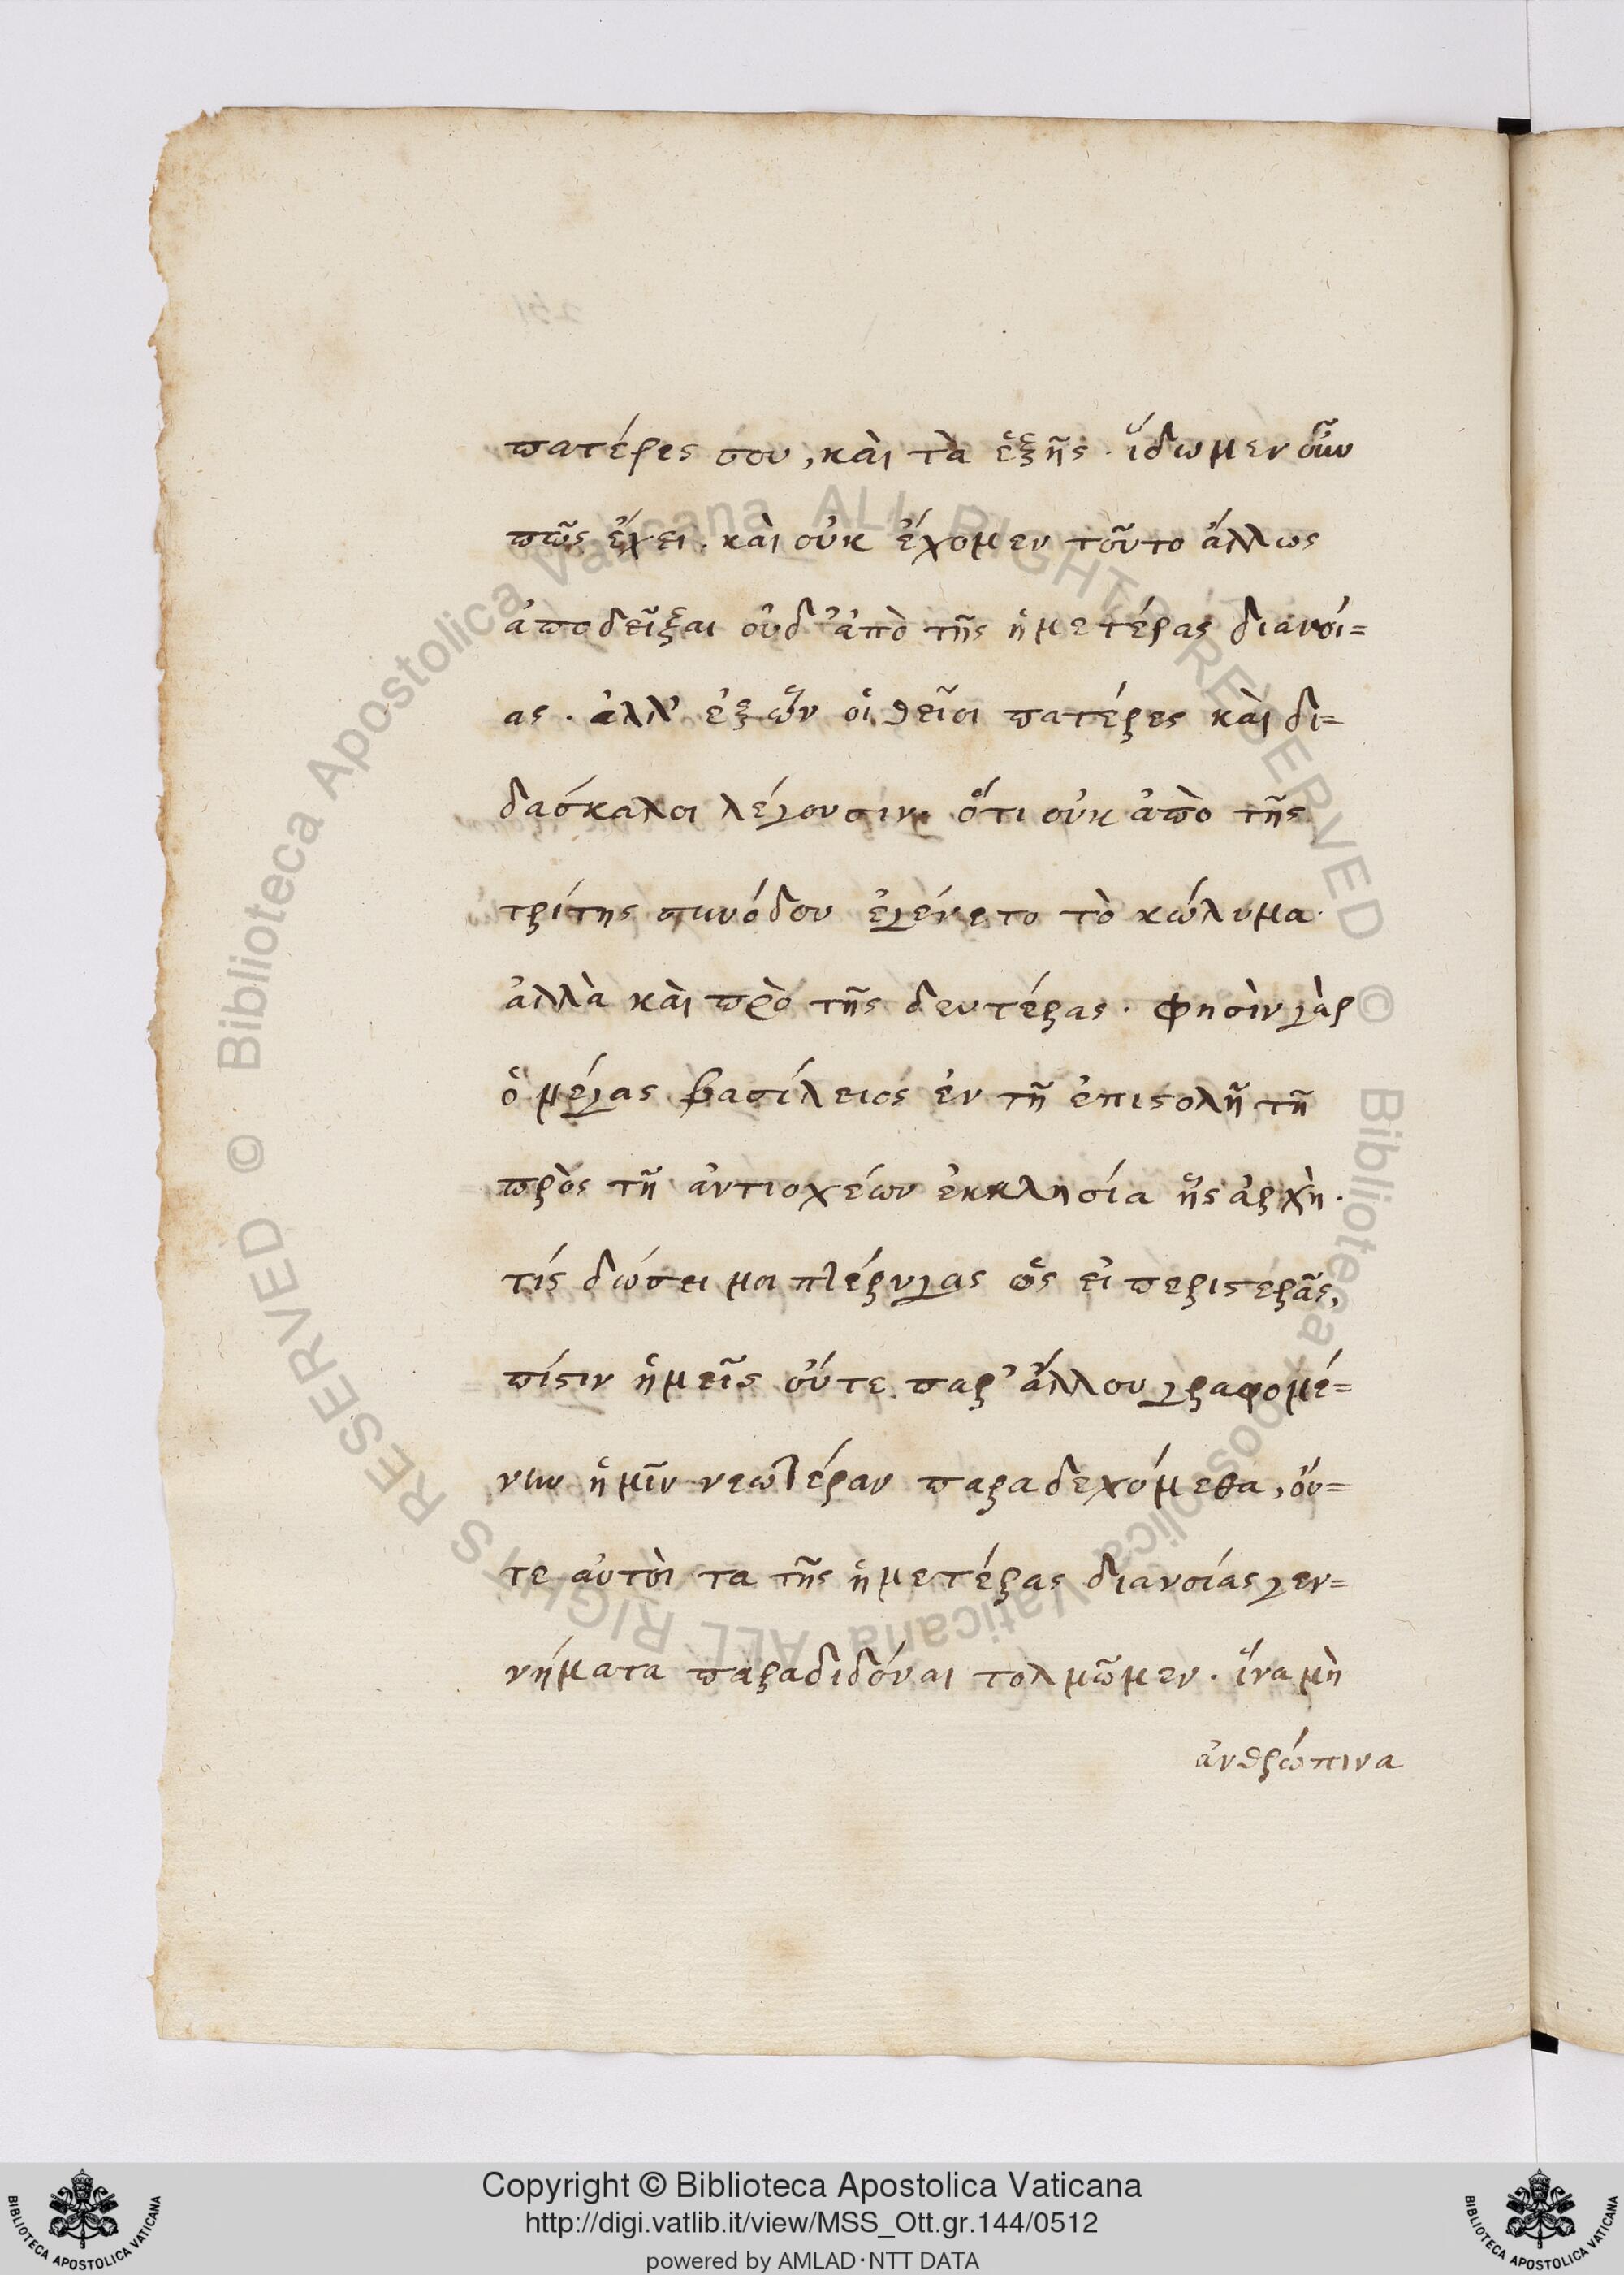 πατέρες σου, καὶ τὰ ἑξῆς. ἴδωμεν οὖν
πῶς ἔχει. καὶ οὐκ ἔχομεν τοῦτο ἄλλως
ἀποδεῖξαι οὐδ' ἀπὸ τῆς ἡμετέρας διανοί=
ας. ἀλλ' ἐξ ὧν οἱ θεῖοι πατέρες καὶ δι=
δασκαλοι λέγουσιν. ὅτι οὐκ ἀπὸ τῆς
τρίτης συνόδου ἐγένετο τὸ κώλυμα.
ἀλλὰ καὶ πρὸ τῆς δευτέρας. φησὶν γὰρ
ὁ μέγας βασίλειος ἐν τῆ ἐπιστολῆ τῆ
πρὸς τῆ ἀντιοχέων ἐκκλησία ἧς ἀρχὴ.
τίς δώσει μοι πτέρυγας ὡς εἰ περιστερᾶς,
πίστιν ἡμεῖς οὔτε παρ' ἄλλου γραφομέ=
νην ἡμῖν νεωτέραν παραδεχόμεθα, οὔ=
τε αὐτοὶ τα τῆς ἡμετέρας διανοίας γεν=
νήματα παραδιδόναι τολμῶμεν. ἵνα μὴ
ἀνθρώπινα
© Biblioteca Apostolica Vaticana ALL RIGHTS RESERVED © Biblioteca Apostolica Vaticana ALL RIGHTS RESERVED
Copyright © Biblioteca Apostolica Vaticana
http://digi.vatlib.it/view/MSS_Ott.gr.144/0512
powered by AMLAD·NTT DATA
BIBLIOTECA APOSTOLICA VATICANA
BIBLIOTECA APOSTOLICA VATICANA